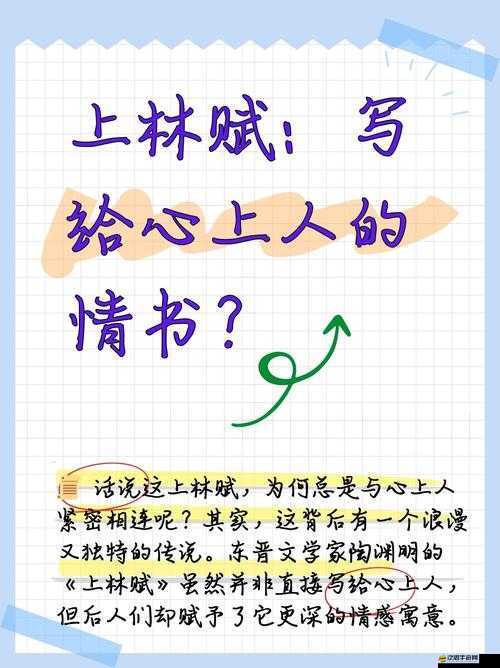 上林赋：写
给心上人的
情书？
话说这上林赋，为何总是与心上人
紧密相连呢？其实，这背后有一个浪漫
又独特的传说。东晋文学家陶渊明的
《上林赋》虽然并非直接写给心上人，
但后人们却赋予了它更深的情感寓意。